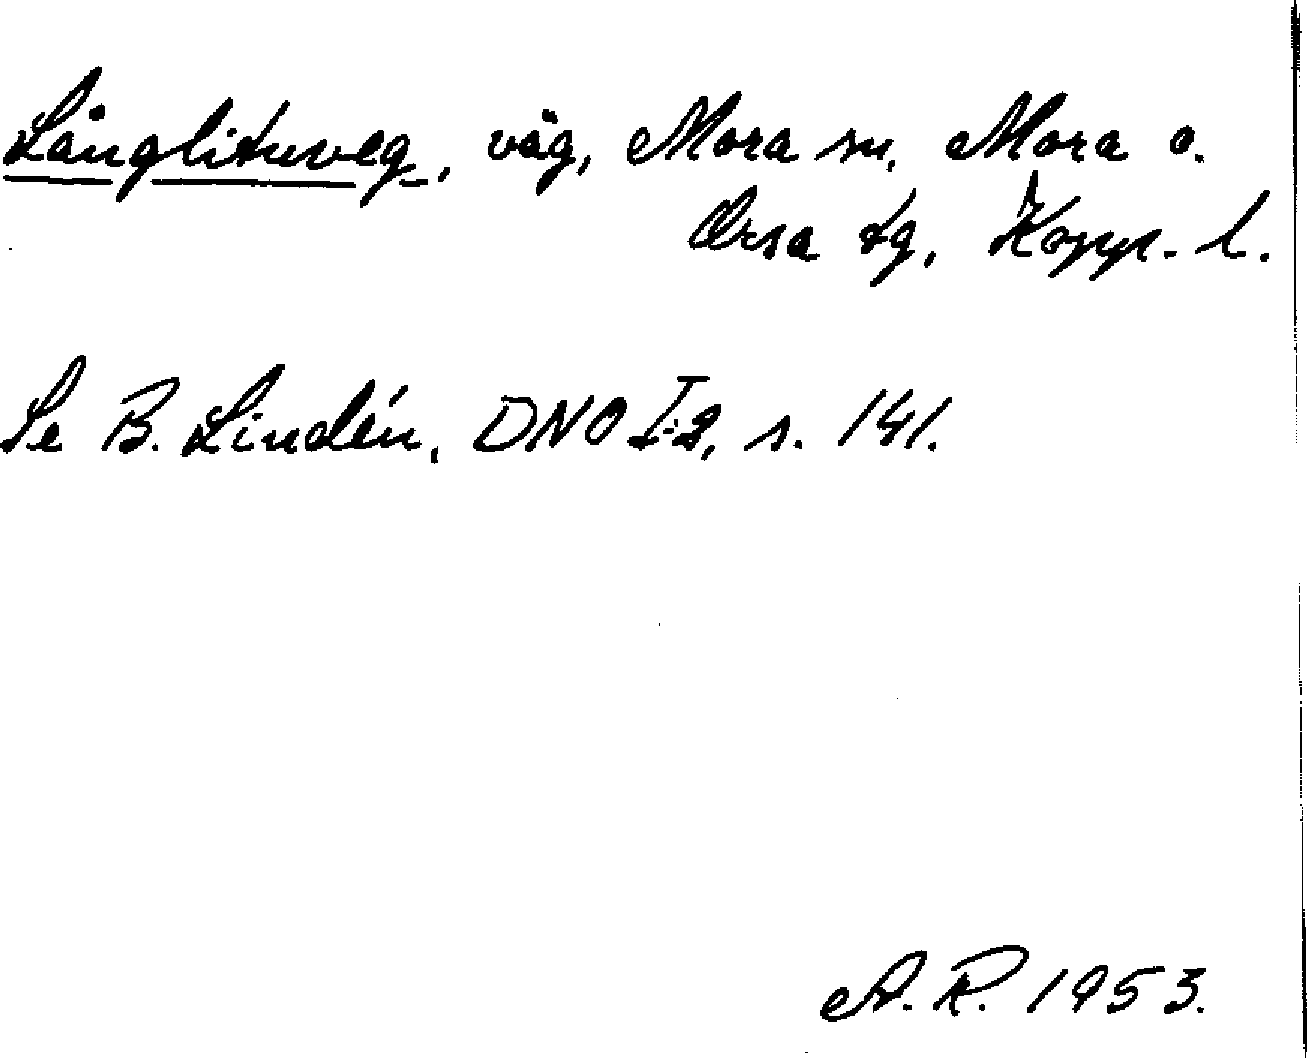 Långlituveg, väg, Mora sn, Mora o.
Orsa tg, Kopp. l.
Se B. Lindén, DNO I:2, s. 141.
A. R. 1953.